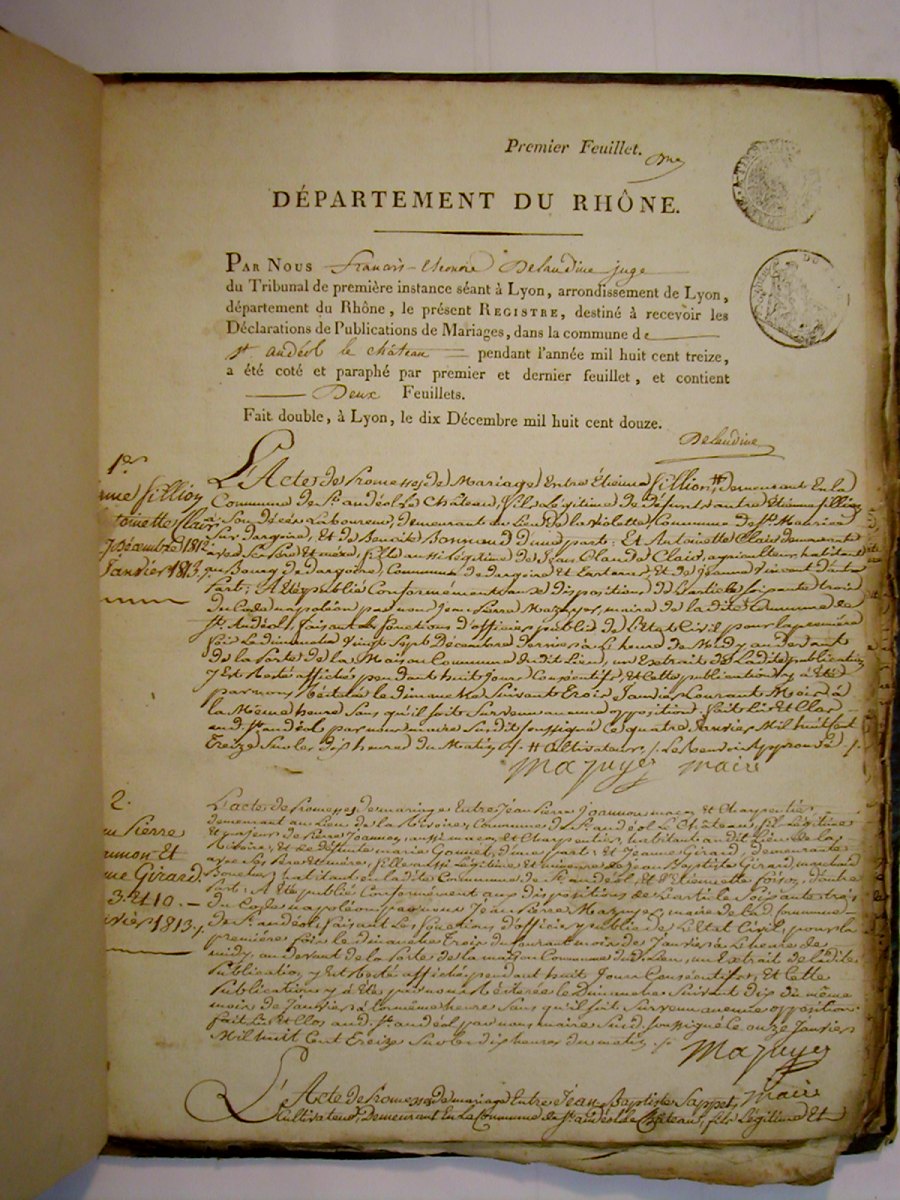 Premier Feuillet.
DÉPARTEMENT DU RHÔNE.
PAR NOUS François-Eleonore Delandine juge
du Tribunal de première instance séant à Lyon, arrondissement de Lyon,
département du Rhône, le présent REGISTRE, destiné à recevoir les
Déclarations de Publications de Mariages, dans la commune de
st andéol le château pendant l'année mil huit cent treize,
a été coté et paraphé par premier et dernier feuillet, et contient
Deux Feuillets.
Fait double, à Lyon, le dix Décembre mil huit cent douze.
Delandine
1er
fillion
toinette Clair
Décembre 1812
Janvier 1813
L'Acte de Promesses de Mariage Entre Etienne fillion, # demeurant En la
Commune de St. andéol Le Château, fils Légitime de Etienne fillion
Laboureur, demeurant au Lieu de la Commune de St. Maurice
Sur dargoire, Et de Benoite Bonnand d'une part: Et Antoinette Clair demeurante
avec Ses Père Et mère, fille aussi Légitime de Jean Claude Clair, agriculteur, habitant
au Bourg de dargoire, Commune de dargoire Et, Et de jeanne vincent d'autre
Part: A Eté publié Conformément aux dispositions de L'article Soixante trois
du Code napoléon par nous Jean Pierre Mazuyer, maire de la dite Commune de
St. Andéol, faisant Les fonctions d'officier public de L'Etat Civil, pour la première
fois Le dimanche Vingt Sept Décembre dernier à L'heure de Midy au devant
de la Porte de la Maison Commune dudit Lieu, un Extrait de Ladite publication
y Est Resté affiché pendant huit Jours Consécutifs, Et Cette publication y a été
par nous Réitérée le dimanche Suivant trois Janvier Courant Mois à
la Même heure Sans qu'il soit Survenu aucune opposition. fait Lu et Clos
aud. St. andéol par nous maire Susdit Soussigné Ce quatre Janvier Mil huit Cent
Treize Sur les dix heures du Matin # Cultivateur. Le Renvoi Approuvé
Mazuyer maire
2.
Pierre
Joannon Et
Girard
3 Et 10.
1813.
L'acte de Promesses de mariage Entre Jean Pierre Joannon maçon, Et Charpentier,
demeurant au Lieu de la Rosière, Commune de St. andéol Le Château, fils Légitime
Et majeur de Pierre Joannon, aussi maçon, Et Charpentier, habitant audit Lieu de la
Rosière, Et de défunte marie Gonnet, d'une part: Et Jeanne Girard demeurante
avec Ses Père Et mère, fille aussi Légitime Et mineure de Jean Baptiste Girard, marchand
Boucher, habitant En ladite Commune de St. andéol, Et d'Etiennette, d'autre
Part: A Eté publié Conformément aux dispositions de L'article Soixante trois
du Code napoléon par nous Jean Pierre Mazuyer, maire de Lad. Commune
de St. andéol, faisant Les fonctions d'officier public de L'Etat Civil, pour la
première fois Le dimanche Trois du Courant mois de Janvier à L'heure de
midy, au devant de la Porte de la maison Commune dud. Lieu, un Extrait de Ladite
Publication y Est Resté affiché pendant huit Jours Consécutifs, Et Cette
Publication y a Eté par nous Réitérée Le Dimanche Suivant dix du même
mois de Janvier à la même heure Sans qu'il soit Survenu aucune opposition
fait Lu et Clos aud. St. andéol par nous maire Susd. Soussigné Le onze Janvier
Mil huit Cent Treize Sur les dix heures du matin
Mazuyer
maire
L'Acte de Promesses de mariage Entre Jean Baptiste Sappet,
Cultivateur, Demeurant En La Commune de St. andéol le Château, fils Légitime Et